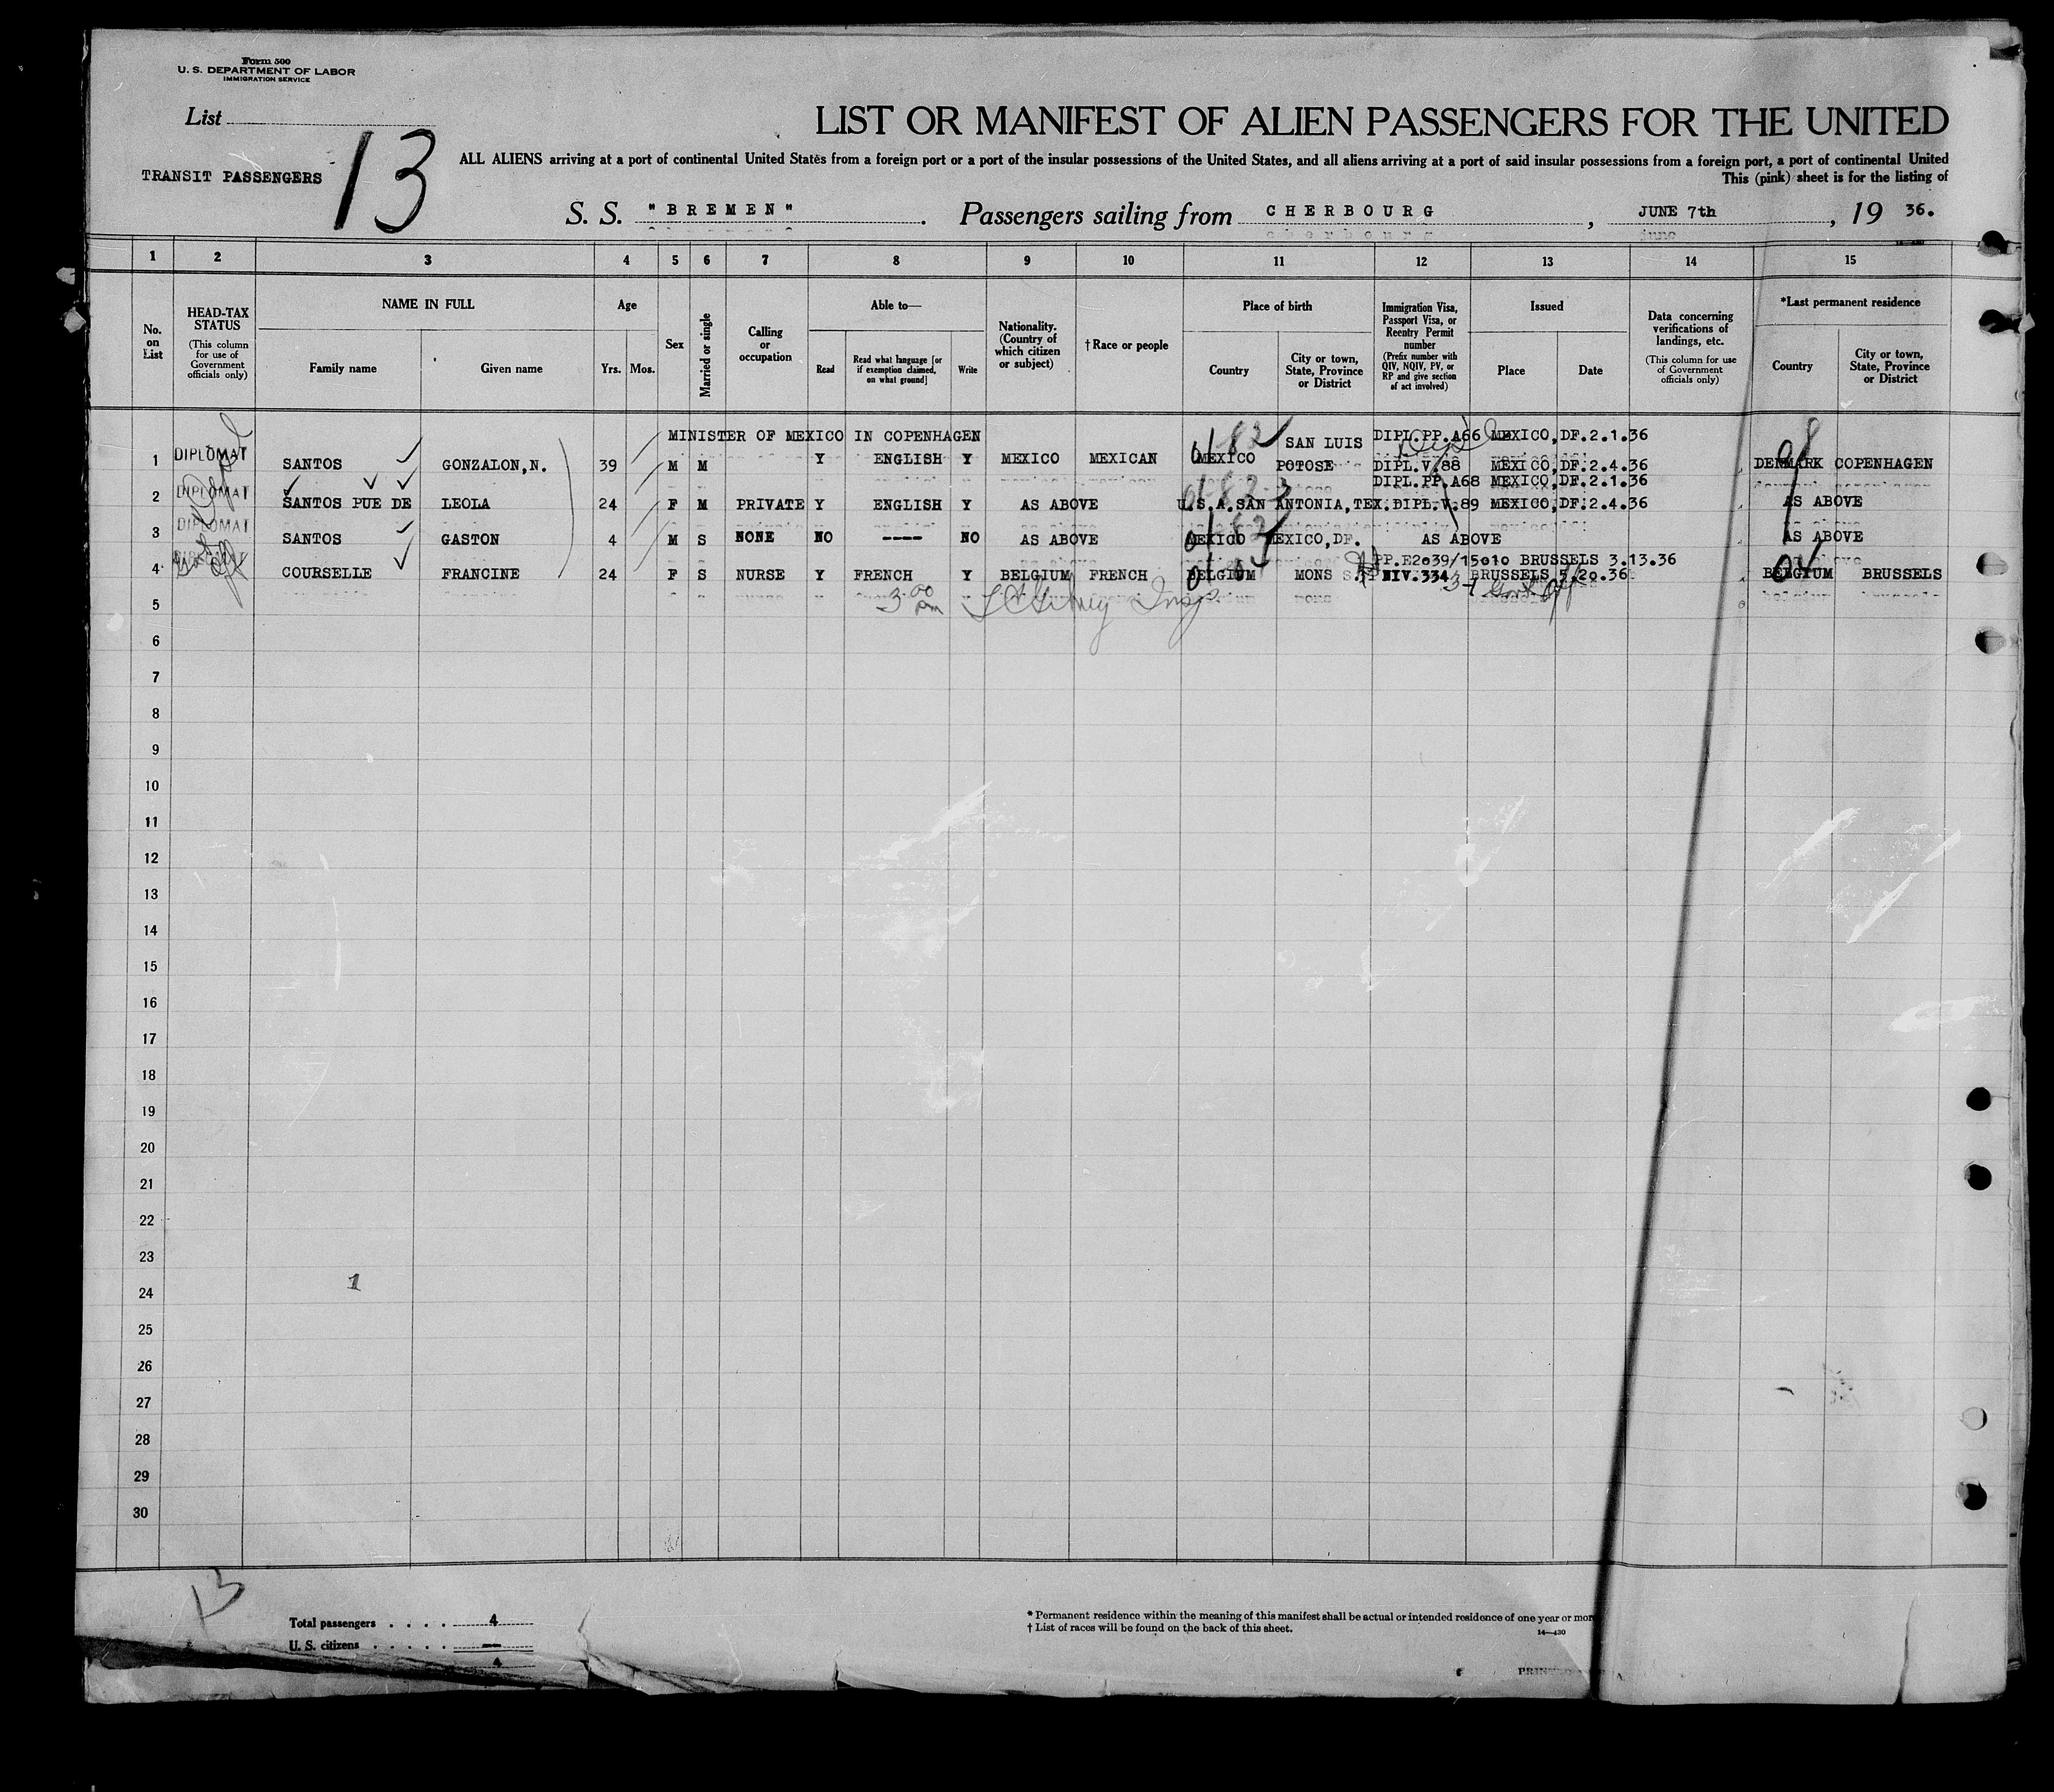 Form 500
U. S. DEPARTMENT OF LABOR
IMMIGRATION SERVICE
List
13
TRANSIT PASSENGERS
LIST OR MANIFEST OF ALIEN PASSENGERS FOR THE UNITED
ALL ALIENS arriving at a port of continental United States from a foreign port or a port of the insular possessions of the United States, and all aliens arriving at a port of said insular possessions from a foreign port, a port of continental United
This (pink) sheet is for the listing of
S. S. "BREMEN" . Passengers sailing from CHERBOURG , JUNE 7th , 19 36.
1 2 3 4 5 6 7 8 9 10 11 12 13 14 15
No. on List
HEAD-TAX STATUS
(This column for use of Government officials only)
NAME IN FULL
Family name
Given name
Age
Yrs.
Mos.
Sex
Married or single
Calling or occupation
Able to—
Read
Read what language [or if exemption claimed, on what ground]
Write
Nationality. (Country of which citizen or subject)
† Race or people
Place of birth
Country
City or town, State, Province or District
Immigration Visa, Passport Visa, or Reentry Permit number
(Prefix number with QIV, NQIV, PV, or RP and give section of act involved)
Issued
Place
Date
Data concerning verifications of landings, etc.
(This column for use of Government officials only)
*Last permanent residence
Country
City or town, State, Province or District
MINISTER OF MEXICO IN COPENHAGEN SAN LUIS DIPL.PP.A66 MEXICO,DF.2.1.36
1 DIPLOMAT SANTOS GONZALON,N. 39 M M Y ENGLISH Y MEXICO MEXICAN MEXICO POTOSE DIPL.V.88 MEXICO,DF.2.4.36 DENMARK COPENHAGEN
DIPL.PP.A68 MEXICO,DF.2.1.36
2 DIPLOMAT SANTOS PUE DE LEOLA 24 F M PRIVATE Y ENGLISH Y AS ABOVE U.S.A.SAN ANTONIA,TEX.DIPL.V.89 MEXICO,DF.2.4.36 AS ABOVE
3 DIPLOMAT SANTOS GASTON 4 M S NONE NO ---- NO AS ABOVE MEXICO MEXICO,DF. AS ABOVE AS ABOVE
PP.E2039/15010 BRUSSELS 3.13.36
4 COURSELLE FRANCINE 24 F S NURSE Y FRENCH Y BELGIUM FRENCH BELGIUM MONS NIV.334 BRUSSELS 5.20.36 BELGIUM BRUSSELS
5 3 00 pm Insp
6
7
8
9
10
11
12
13
14
15
16
17
18
19
20
21
22
23
24
25
26
27
28
29
30
13
Total passengers . . . . 4
U. S. citizens . . . . . —
4
* Permanent residence within the meaning of this manifest shall be actual or intended residence of one year or mor
† List of races will be found on the back of this sheet.
14—430